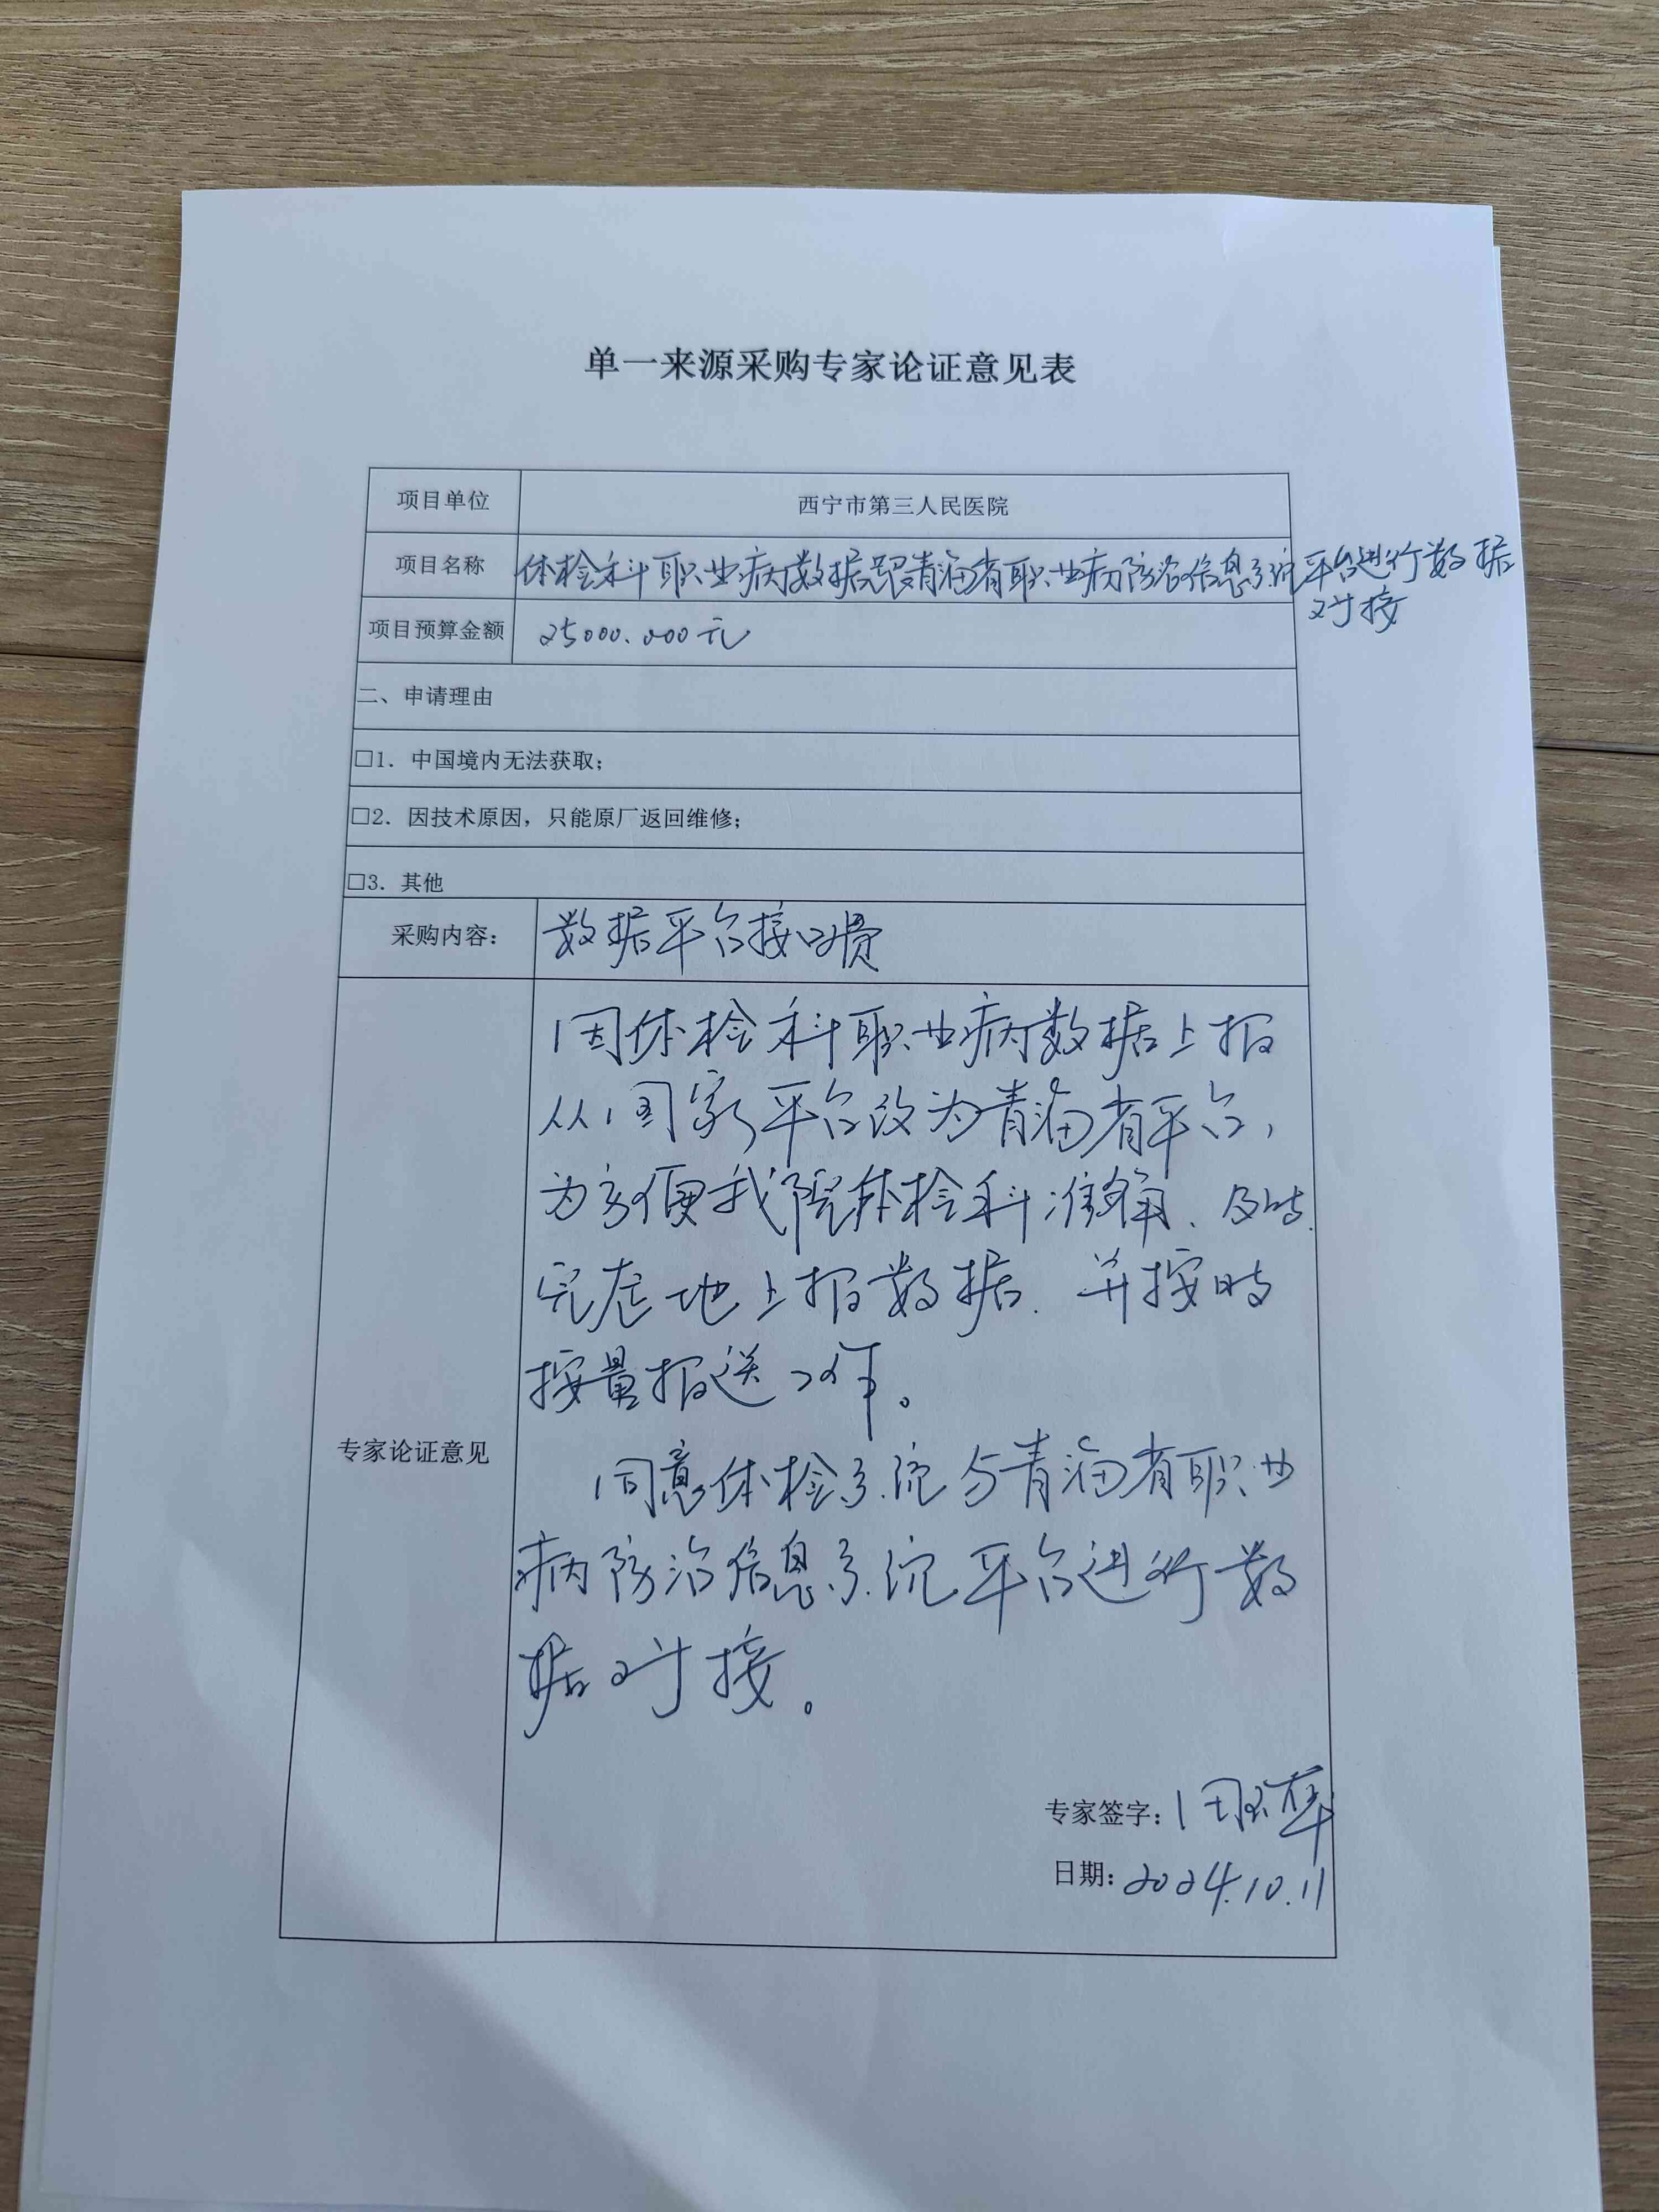 单一来源采购专家论证意见表
项目单位 西宁市第三人民医院
项目名称 体检科职业病数据跟青海省职业病防治信息系统平台进行数据
对接
项目预算金额 25000.000元
二、申请理由
□1. 中国境内无法获取；
□2. 因技术原因，只能原厂返回维修；
□3. 其他
采购内容： 数据平台接口费
因体检科职业病数据上报
从国家平台改为青海省平台，
为方便我院体检科准确、及时、
完整地上报数据、并按时
按量报送工作。
专家论证意见
同意体检系统与青海省职业
病防治信息系统平台进行数
据对接。
专家签字：
日期：2024.10.11